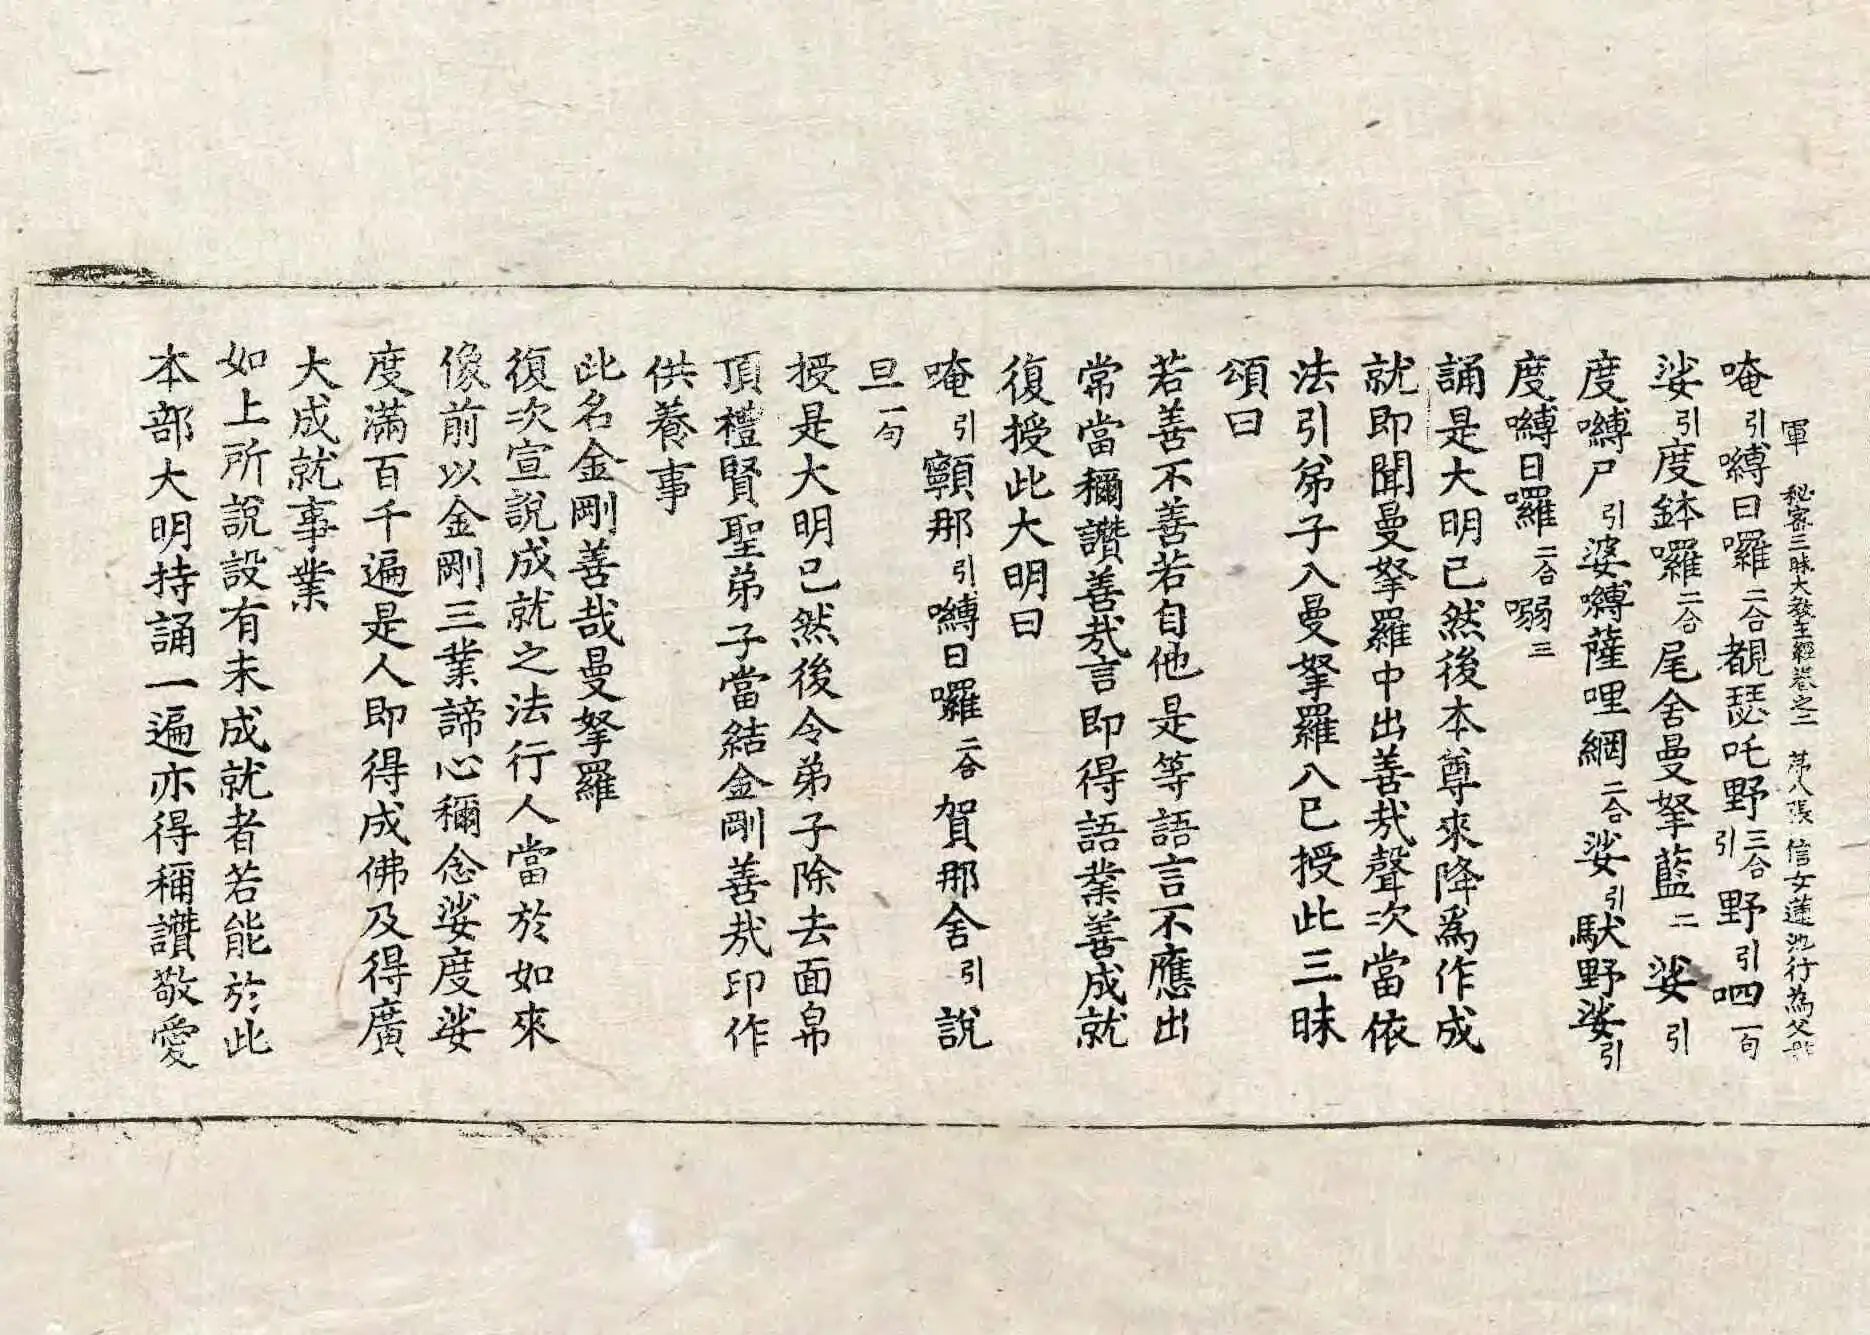 軍 秘密三昧大教王經卷之二 苐八張 信女蓮池行為父母
唵引嚩日囉二合覩瑟吒野三合引野引呬一句
娑引度鉢囉二合尾舍曼拏藍二娑引
度嚩尸引娑嚩薩哩網二合娑引馱野娑引
度嚩日囉二合㗚三
誦是大明已然後本尊來降為作成
就即聞曼拏羅中出善哉聲次當依
法引弟子入曼拏羅入已授此三昧
頌曰
若善不善若自他是等語言不應出
常當稱讚善哉言即得語業善成就
復授此大明曰
唵引顐那引嚩日囉二合賀那舍引說
旦一句
授是大明已然後令弟子除去面帛
頂禮賢聖弟子當結金剛善哉印作
供養事
此名金剛善哉曼拏羅
復次宣說成就之法行人當於如來
像前以金剛三業諦心稱念娑度娑
度滿百千遍是人即得成佛及得廣
大成就事業
如上所說設有未成就者若能於此
本部大明持誦一遍亦得稱讚敬愛